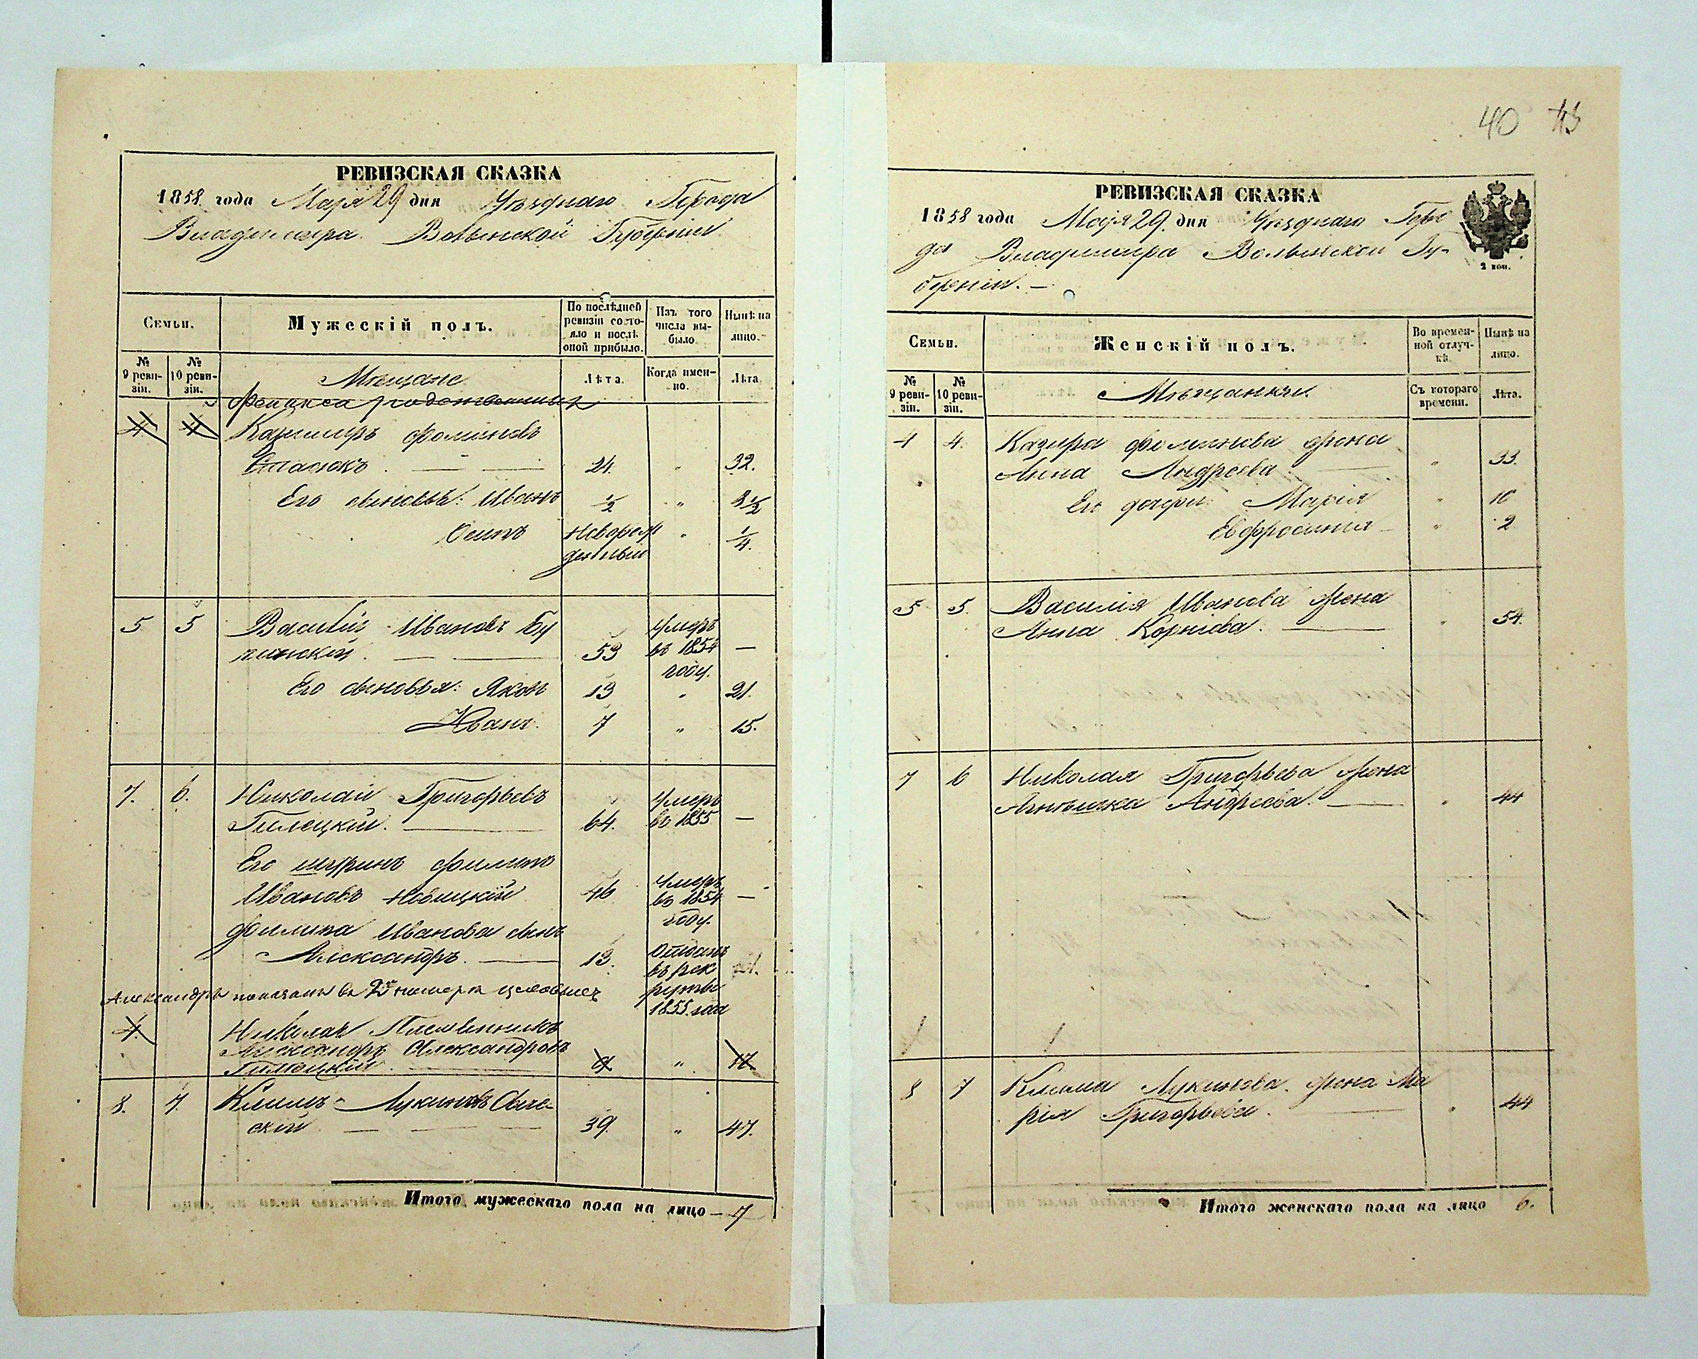 РЕВИЗСКАЯ СКАЗКА
1858 года Мая 29 дня Уѣзднаго Города
Владимира Волынской Губерніи
Семьи.
Мужескій полъ.
По послѣдней ревизіи состояло и послѣ оной прибыло.
Изъ того числа выбыло.
Нынѣ на лицо.
№ 9 ревизіи.
№ 10 ревизіи.
Мѣщане
Лѣта.
Когда именно.
Лѣта
4 4 Казимиръ Фоминовъ
24. " 32.
Его сыновья: Иванъ ½ " 8½
Осипъ Новорожденный " ¼.
5 5 Василій Ивановъ
53 умеръ въ 1854 году. —
Его сыновья: Яковъ 13 " 21.
Иванъ 7 " 15.
7. 6. Николай Григорьевъ
Гилецкій. 64. умеръ въ 1855 —
Его шуринъ Филипъ
Ивановъ Новицкій 46 умеръ въ 1854 году. —
Филипа Иванова сынъ
Александръ. 13. Отданъ въ рекруты 1855 года
Александръ показанъ въ
Николая Племянникъ
Александръ Александровъ
Гилецкій. " 17
8. 7. Климъ Лукиновъ
скій 39. " 47.
Итого мужескаго пола на лицо — 7
40
РЕВИЗСКАЯ СКАЗКА
1858 года Мая 29. дня Уѣзднаго Горо
да Владимира Волынской Гу-
берніи. —
2 коп.
Семьи.
Женскій полъ.
Во временной отлучкѣ.
Нынѣ на лицо.
№ 9 ревизіи.
№ 10 ревизіи.
Мѣщанки.
Съ котораго времени.
Лѣта.
4 4. Казимира Фоминова жена
Анна Андреева. " 33.
Его дочери: Марія " 10
Евфросинія " 2
5 5. Василія Иванова жена
Анна Корніева. " 54.
7 6 Николая Григорьева жена
Андреева. " 44
8 7 Клима Лукинова жена Ма
рія Григорьева. " 44
Итого женскаго пола на лицо 6.